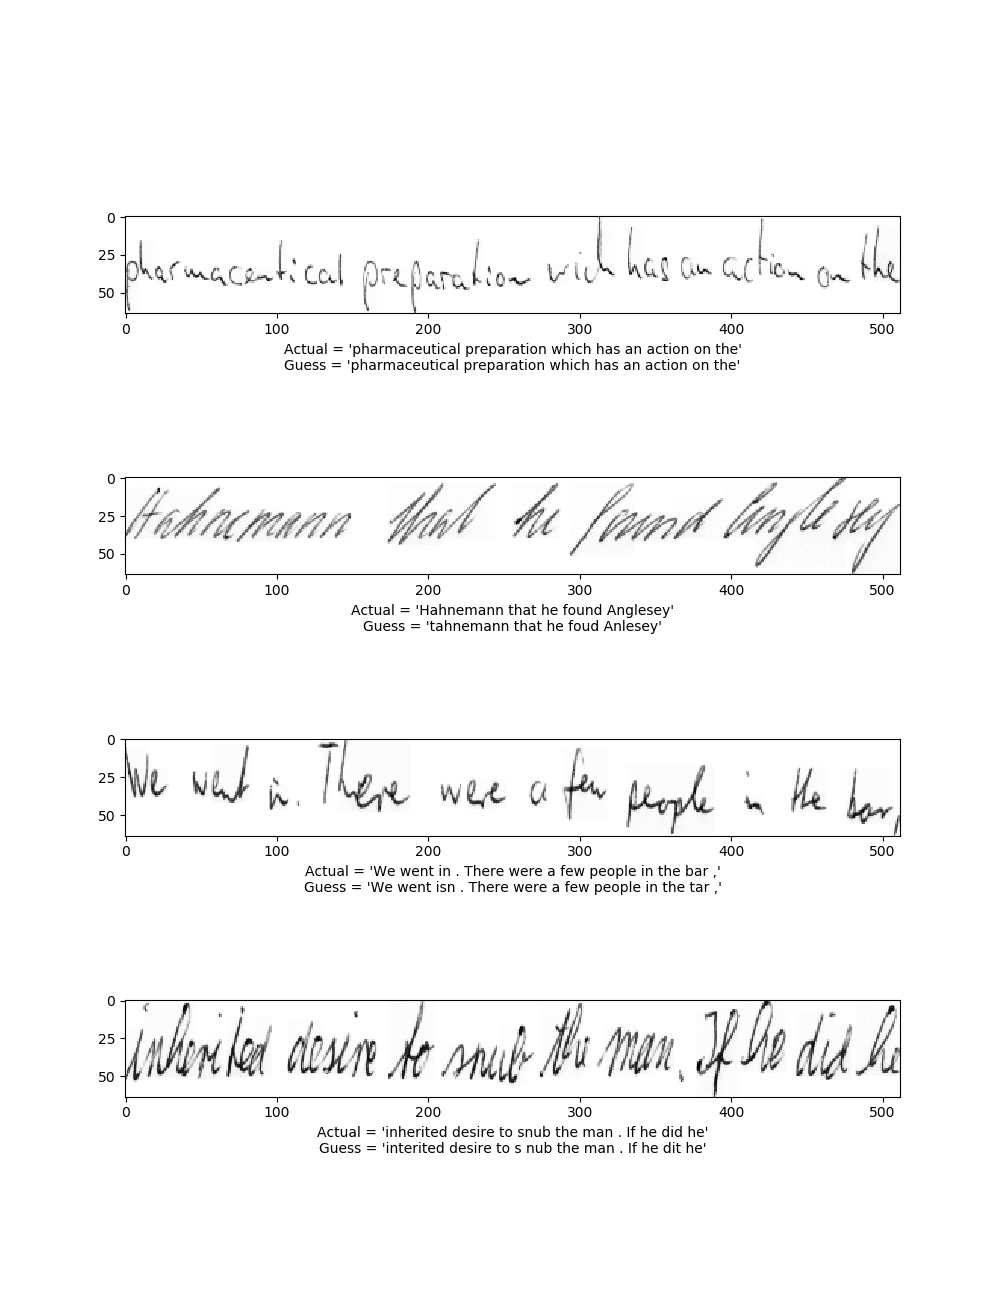 0
25
50
pharmaceutical preparation wich has an action on the
0 100 200 300 400 500
Actual = 'pharmaceutical preparation which has an action on the'
Guess = 'pharmaceutical preparation which has an action on the'
0
25
50
Hahnemann that he found Anglesey
0 100 200 300 400 500
Actual = 'Hahnemann that he found Anglesey'
Guess = 'tahnemann that he foud Anlesey'
0
25
50
We went in. There were a few people in the bar,
0 100 200 300 400 500
Actual = 'We went in . There were a few people in the bar ,'
Guess = 'We went isn . There were a few people in the tar ,'
0
25
50
inherited desire to snub the man. If he did he
0 100 200 300 400 500
Actual = 'inherited desire to snub the man . If he did he'
Guess = 'interited desire to s nub the man . If he dit he'